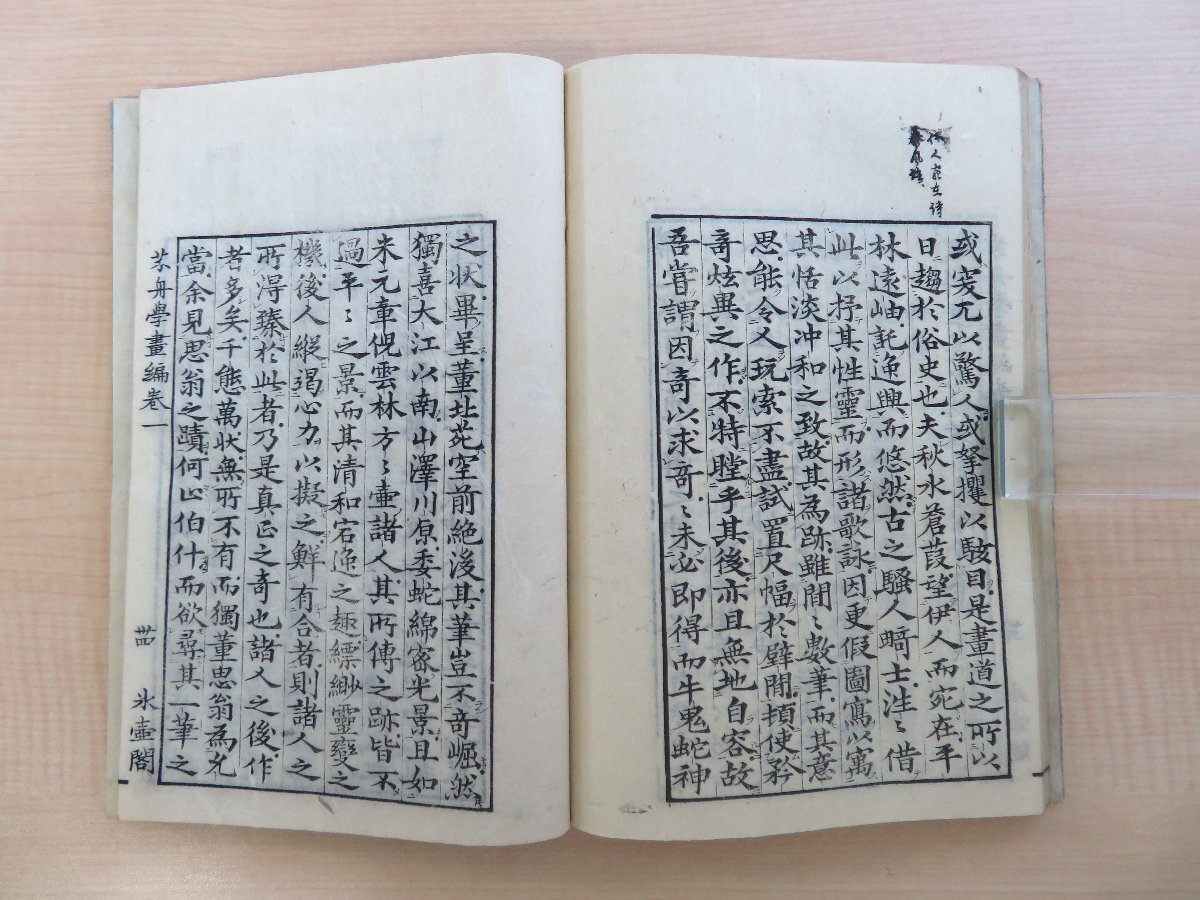 伊人宛在詩
秦風蒹
或突兀以驚人或拏攫以駭目是畫道之所以
日趨於俗史也夫秋水蒼葭望伊人而宛在平
林遠岫託逸興而悠然古之騷人畸士往〻借
此以抒其性靈而形諸歌詠因更假圖寫以寓
其恬淡冲和之致故其為跡雖閒〻數筆而其意
思能令人玩索不盡試置尺幅於壁間頓使矜
奇炫異之作不特瞠乎其後亦且無地自容故
吾嘗謂因奇以求奇〻未必即得而牛鬼蛇神
之狀畢呈董北苑空前絶後其筆豈不奇崛然
獨喜大江以南山澤川原委蛇綿密光景且如
米元章倪雲林方〻壷諸人其所傳之跡皆不
過平〻之景而其清和宕逸之趣縹緲靈變之
機後人縱竭心力以擬之鮮有合者則諸人之
所得臻於此者乃是真正之奇也諸人之後作
者多矣千態萬状無所不有而獨董思翁為允
當余見思翁之蹟何止伯什而欲尋其一筆之
芥舟學畫編巻一
丗四
氷壷閣